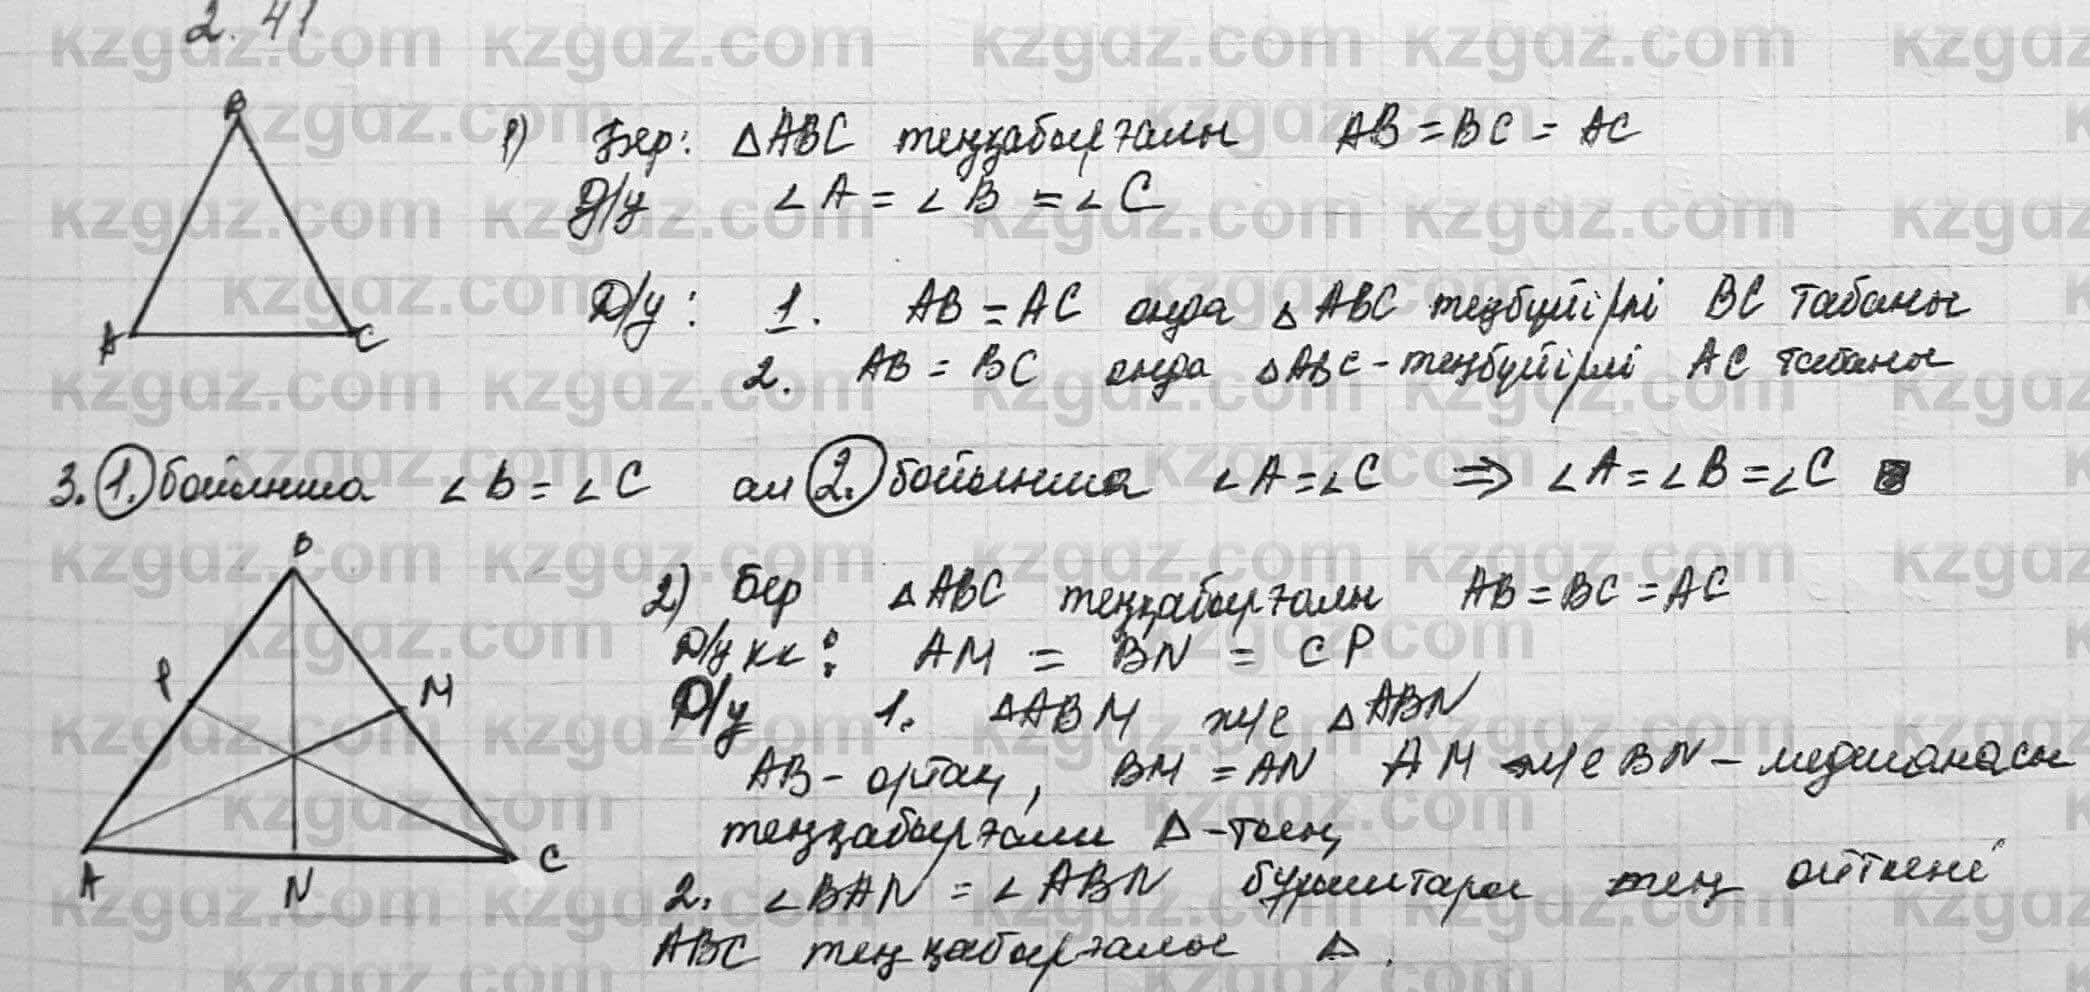 2.41
B
1) Бер: △ABC теңқабырғалы AB = BC = AC
Д/у ∠A = ∠B = ∠C
Д/у: 1. AB = AC онда △ABC теңбүйірлі BC табаны
A C
2. AB = BC онда △ABC - теңбүйірлі AC табаны
3. 1. бойынша ∠B = ∠C ал 2. бойынша ∠A = ∠C ⇒ ∠A = ∠B = ∠C
B
2) Бер △ABC теңқабырғалы AB = BC = AC
Д/у кк: AM = BN = CP
P M
Д/у 1. △ABM және △ABN
AB - ортақ, BM = AN AM және BN - медианасы
теңқабырғалы △ - тың
A N C
2. ∠BAN = ∠ABN бұрыштары тең өйткені
ABC теңқабырғалы △.
kzgdz.com